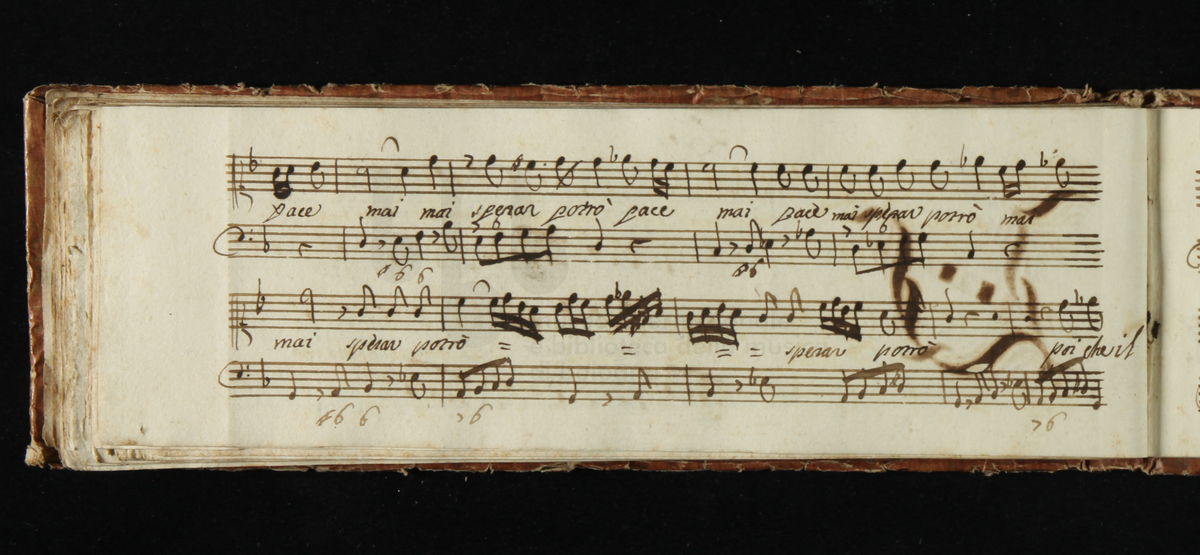 pace mai mai sperar potrò pace mai pace mai sperar potrò mai
6
6
#6 6
#6
mai sperar potrò = = = = sperar potrò poi che il
#6 6 76 76